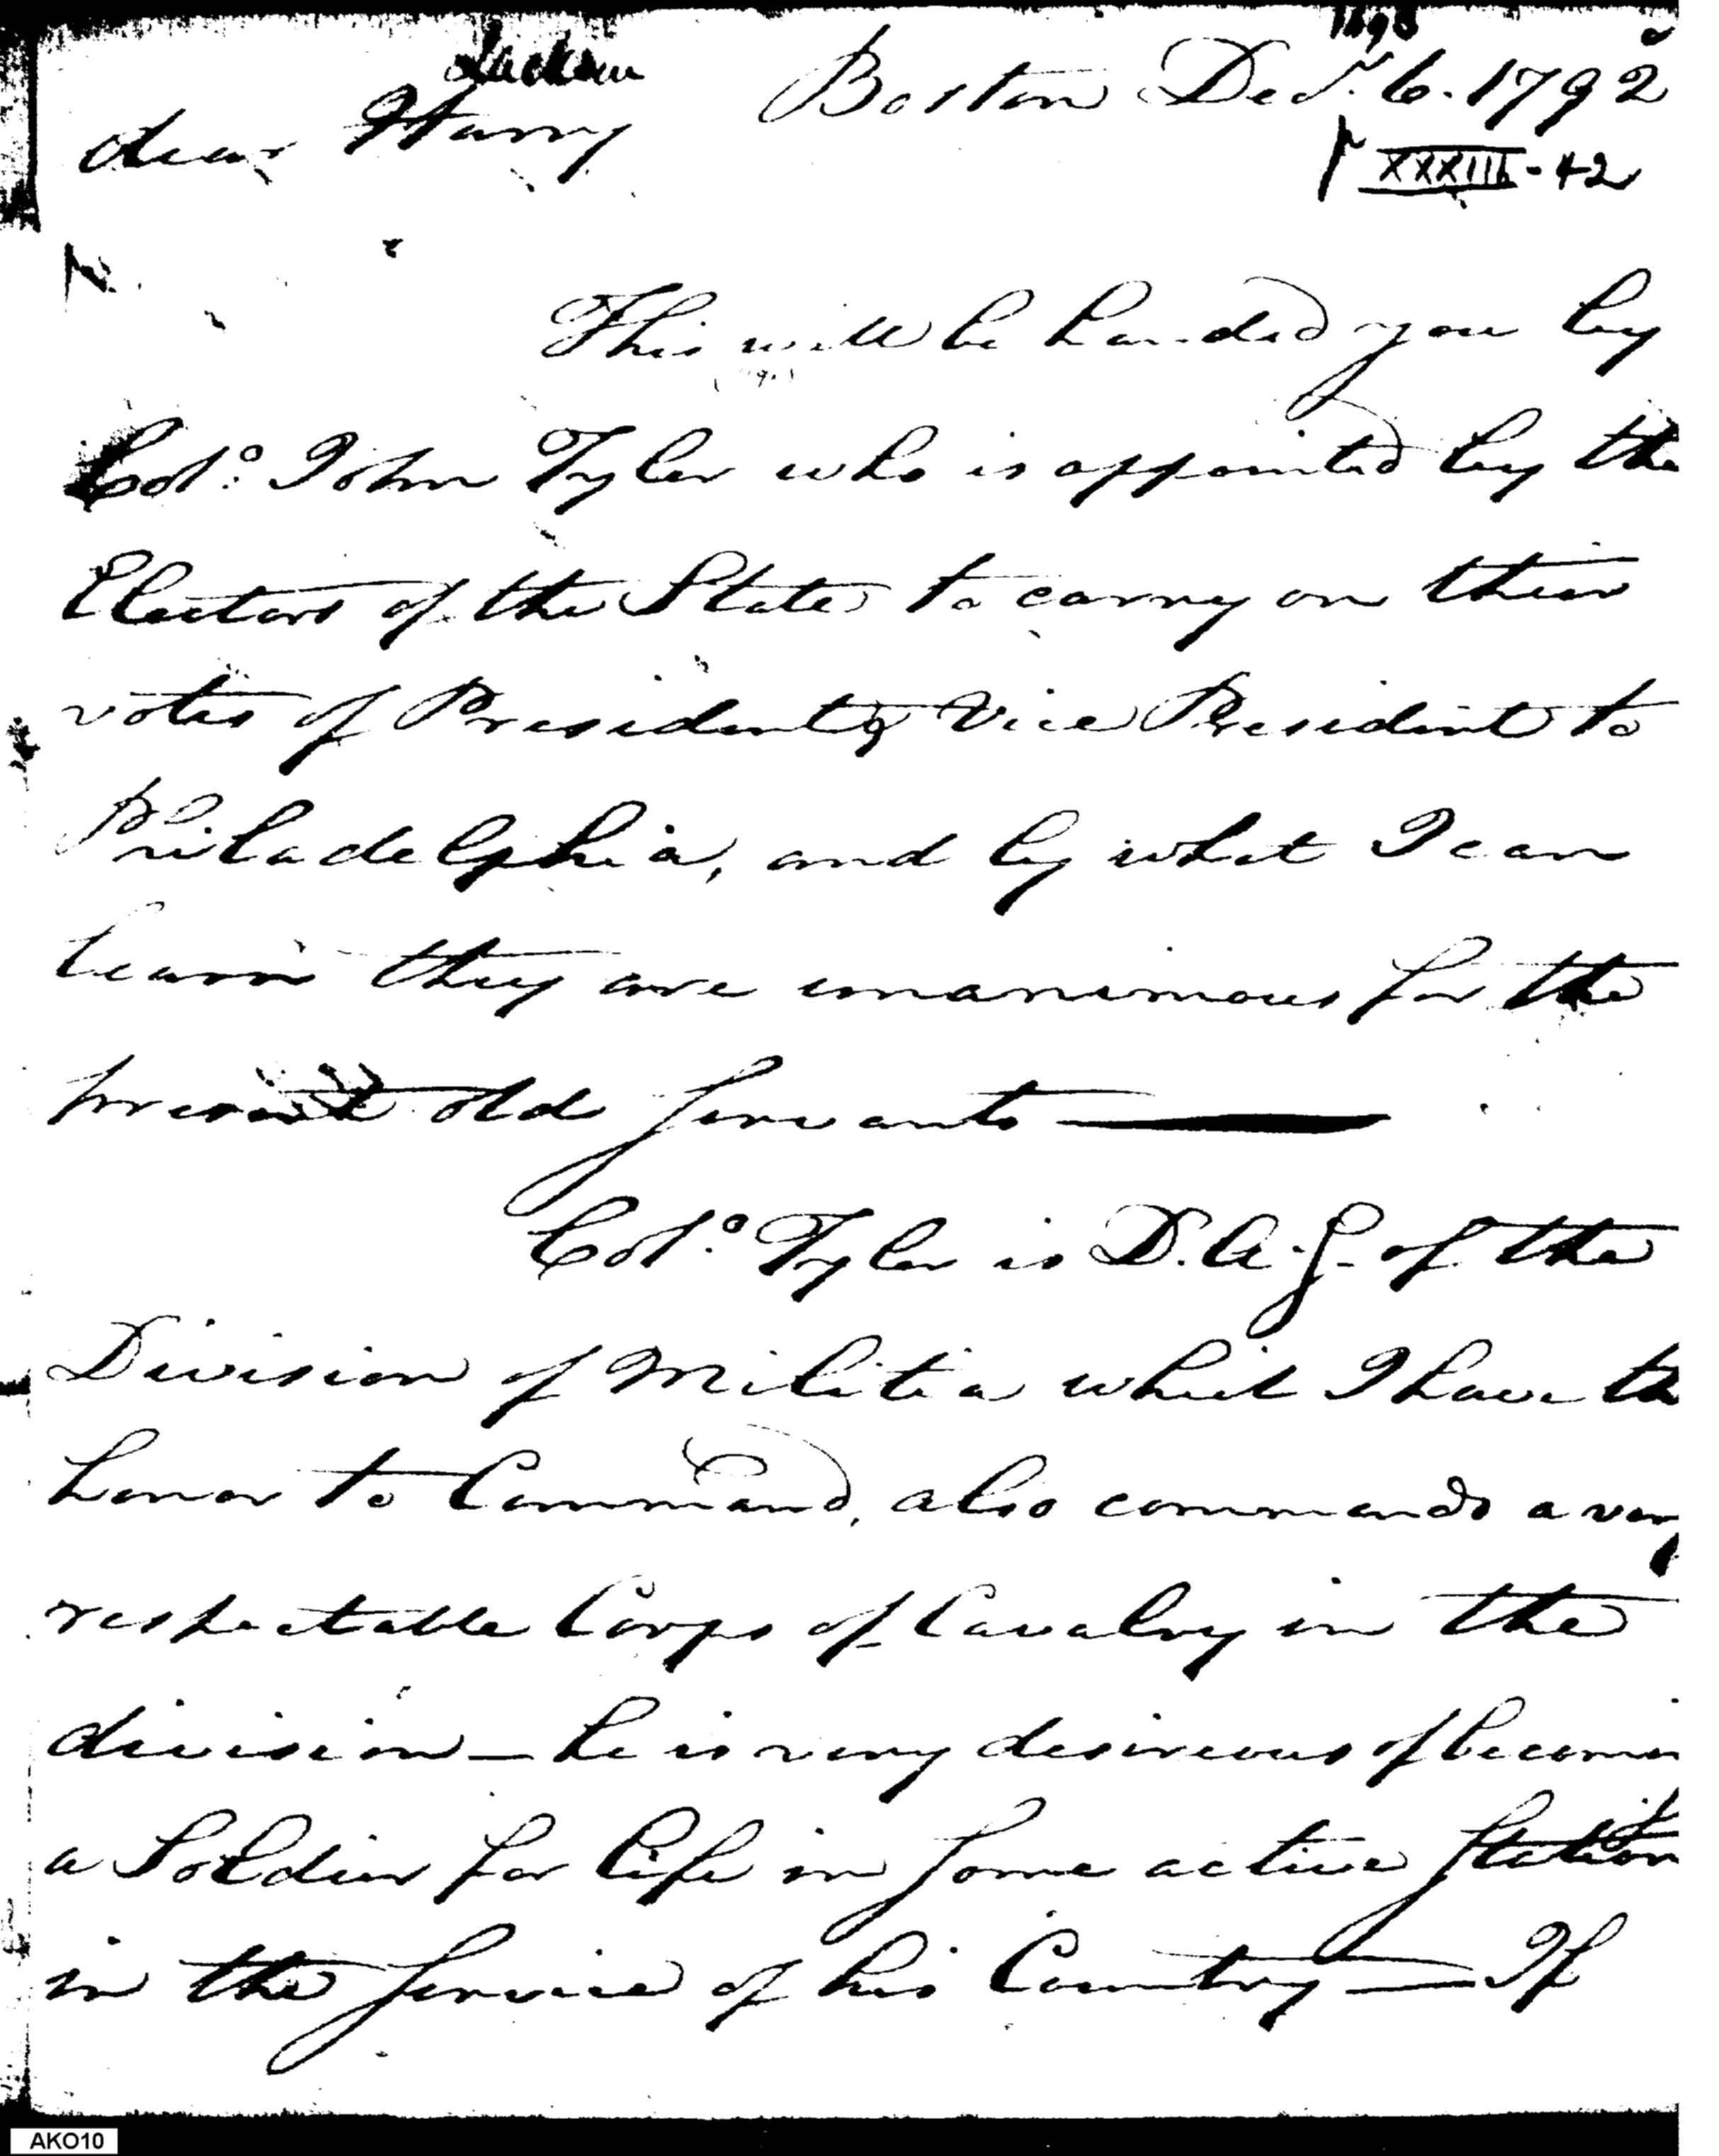 Jackson
Boston Decr. 6. 1792
dear Harry
XXXIII - 42
This will be handed you by
Colo. John Tyler who is appointed by the
Electors of the State to carry on their
votes of President & Vice President to
Philadelphia, and by what I can
learn they are unanimous for the
present old servants —
Colo. Tyler is D.A.G. of the
Division of Militia which I have the
honor to Command, also commands a very
respectable Corps of Cavalry in the
division — he is very desireous of becoming
a Soldier for life in some active station
in the service of his Country — If
AKO10